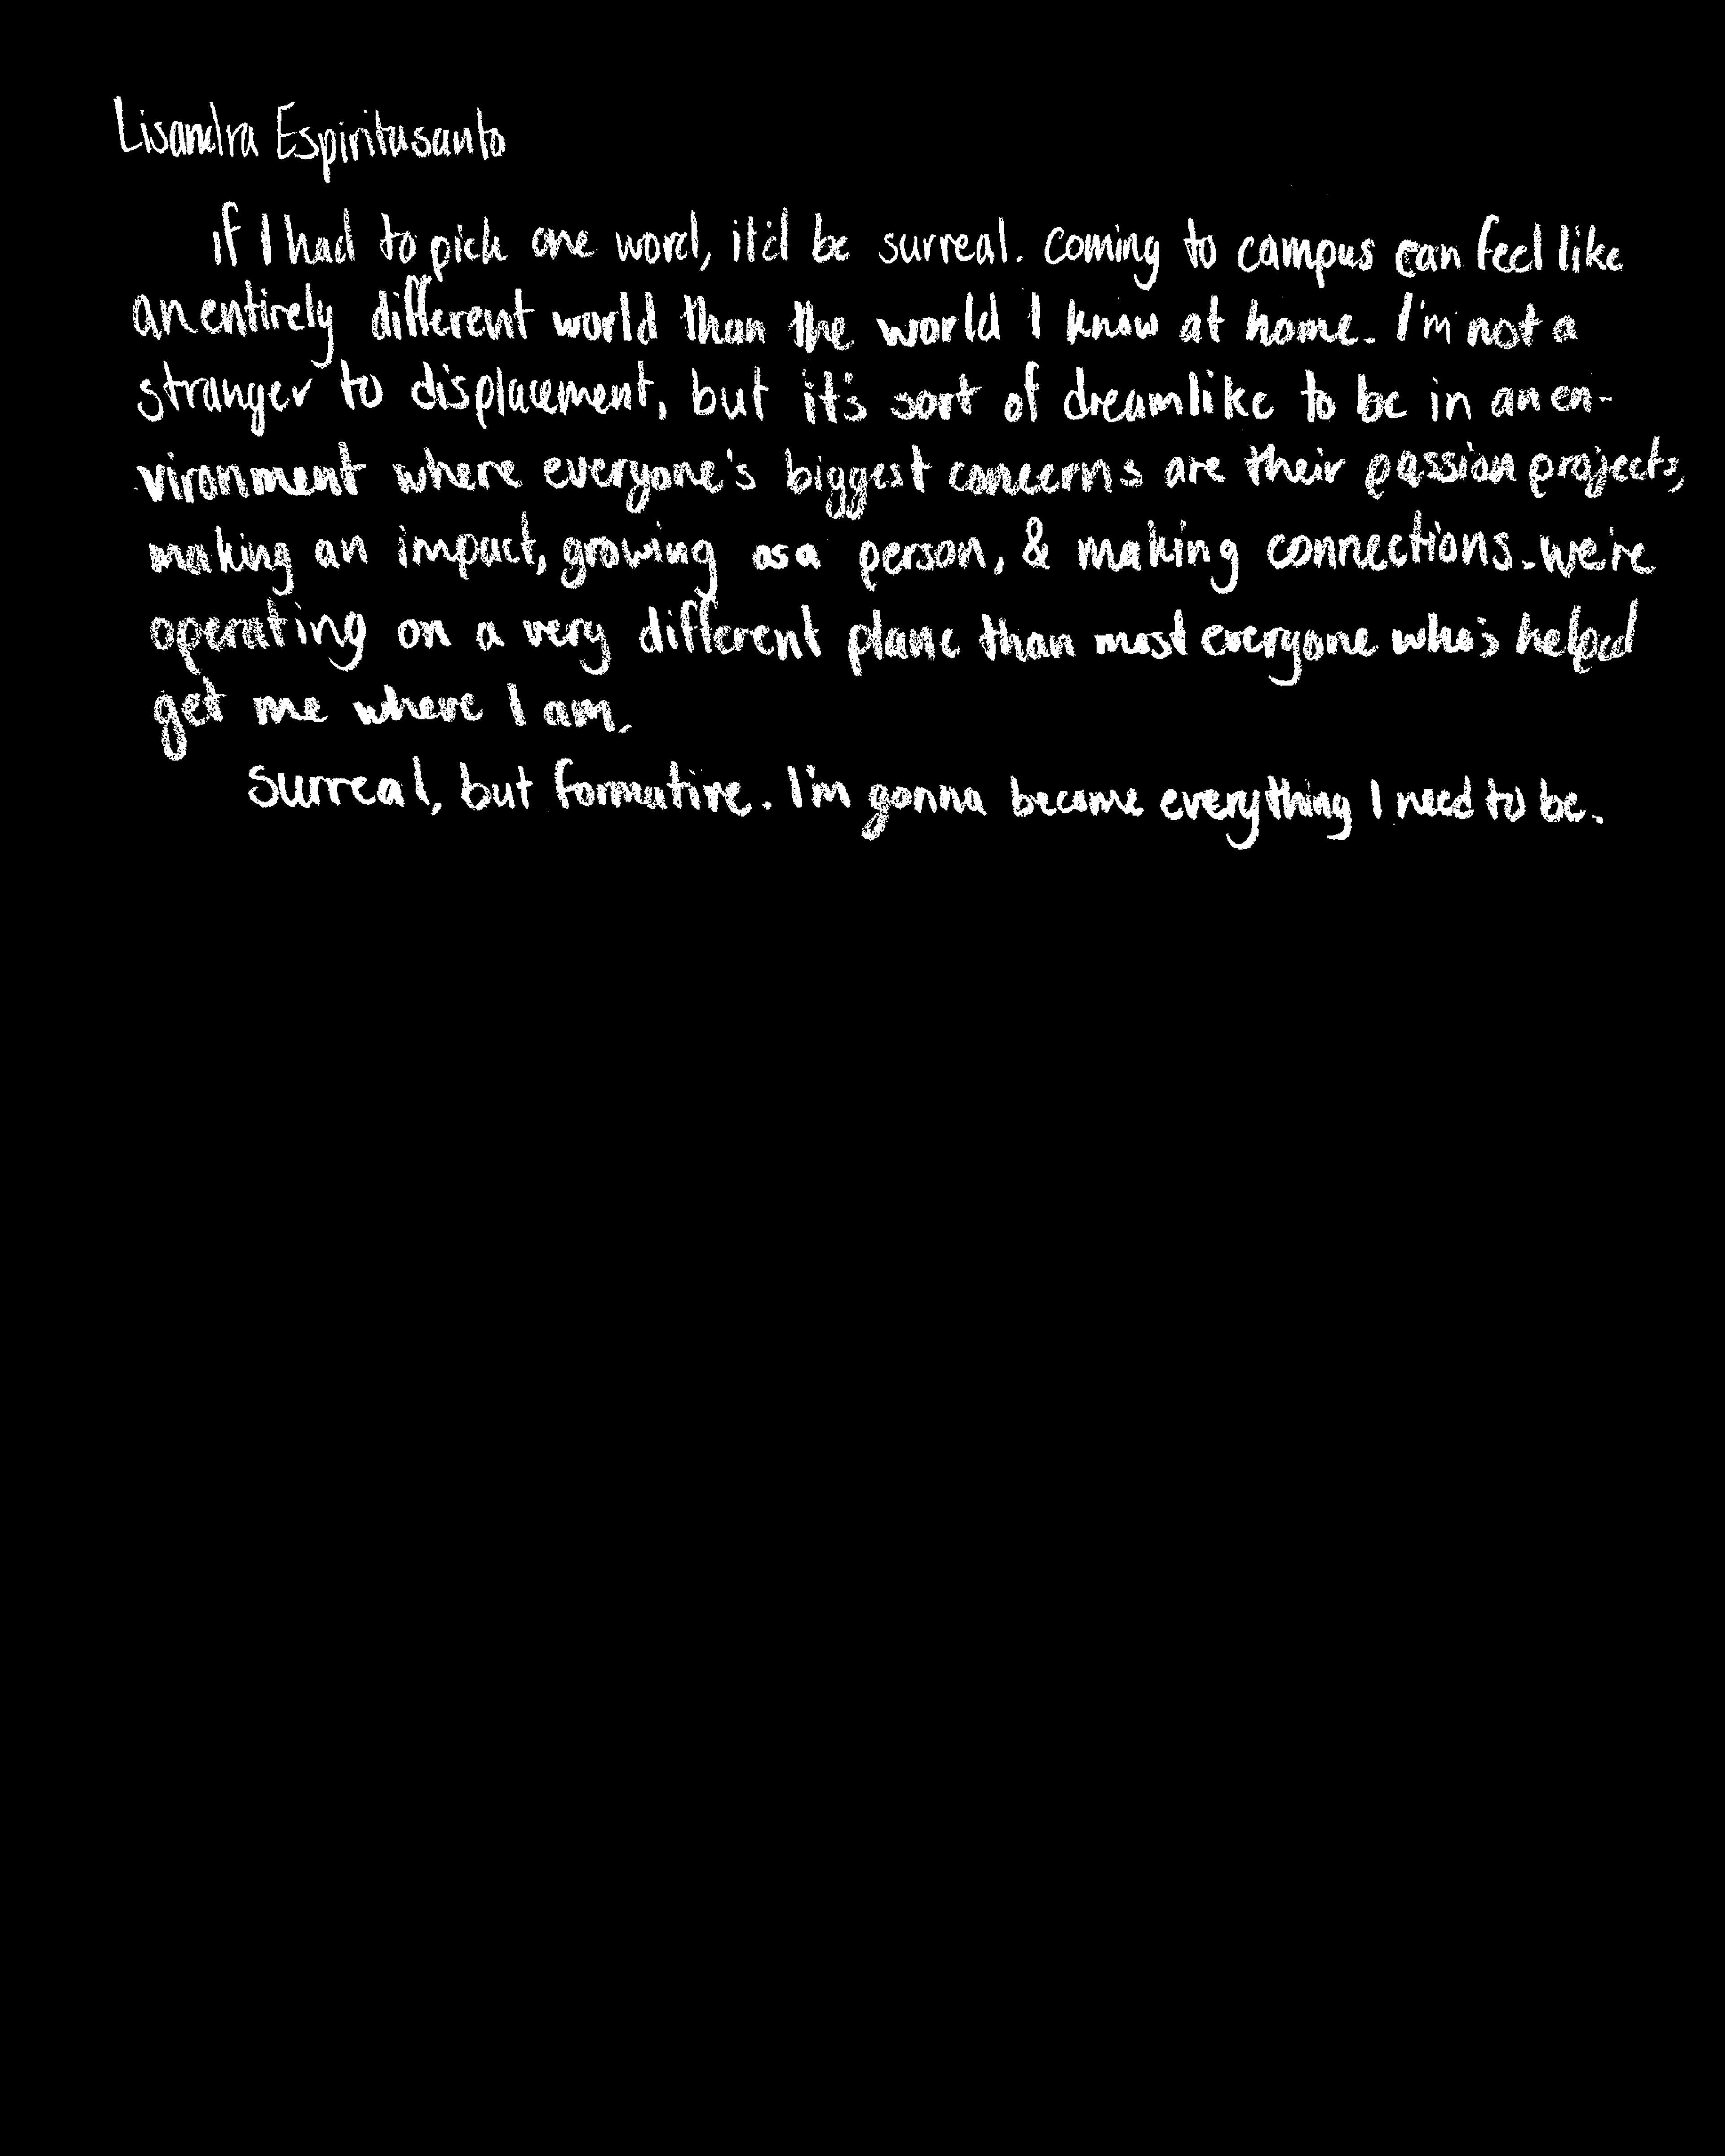 Lisandra Espiritusanto
if I had to pick one word, it'd be surreal. coming to campus can feel like
an entirely different world than the world I know at home. I'm not a
stranger to displacement, but it's sort of dreamlike to be in an en-
vironment where everyone's biggest concerns are their passion projects,
making an impact, growing as a person, & making connections. we're
operating on a very different plane than most everyone who's helped
get me where I am.
surreal, but formative. I'm gonna become everything I need to be.